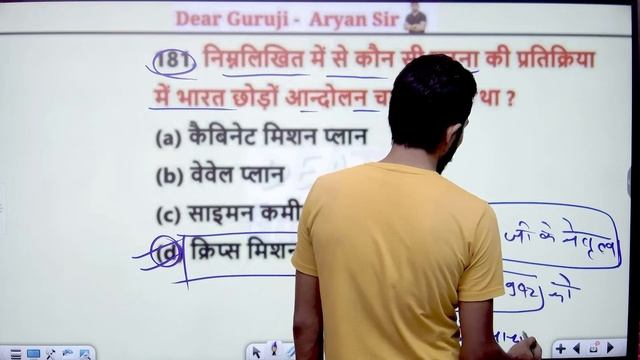 Dear Guruji - Aryan Sir
181 निम्नलिखित में से कौन सी की प्रतिक्रिया
में भारत छोड़ों आन्दोलन था ?
(a) कैबिनेट मिशन प्लान
(b) वेवेल प्लान
(c) साइमन कमी
(d) क्रिप्स मिशन
जी के नेतृत्व